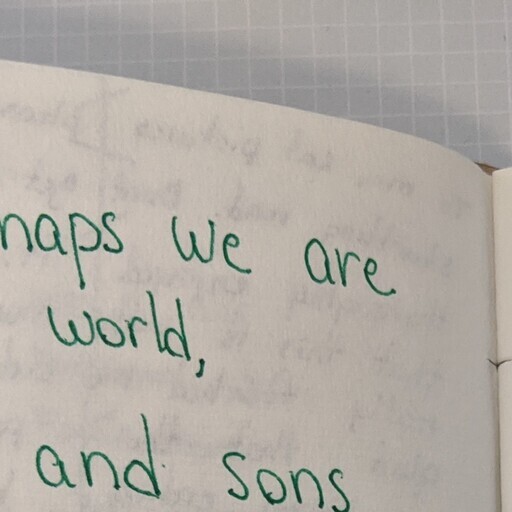 haps we are
world,
and sons